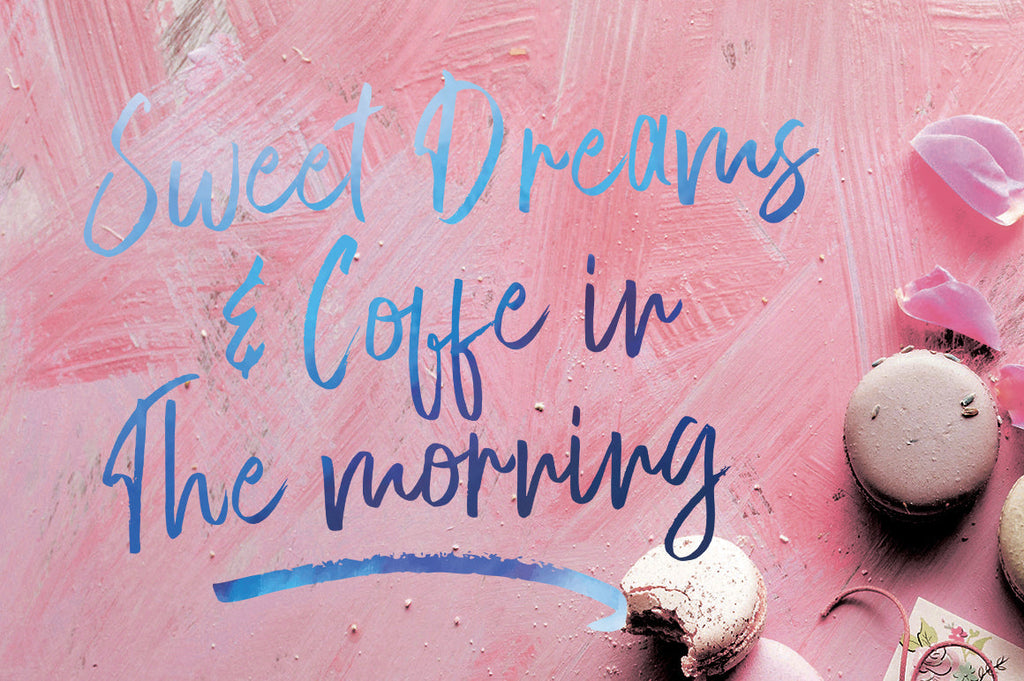 Sweet Dreams
& Coffe in
The morning